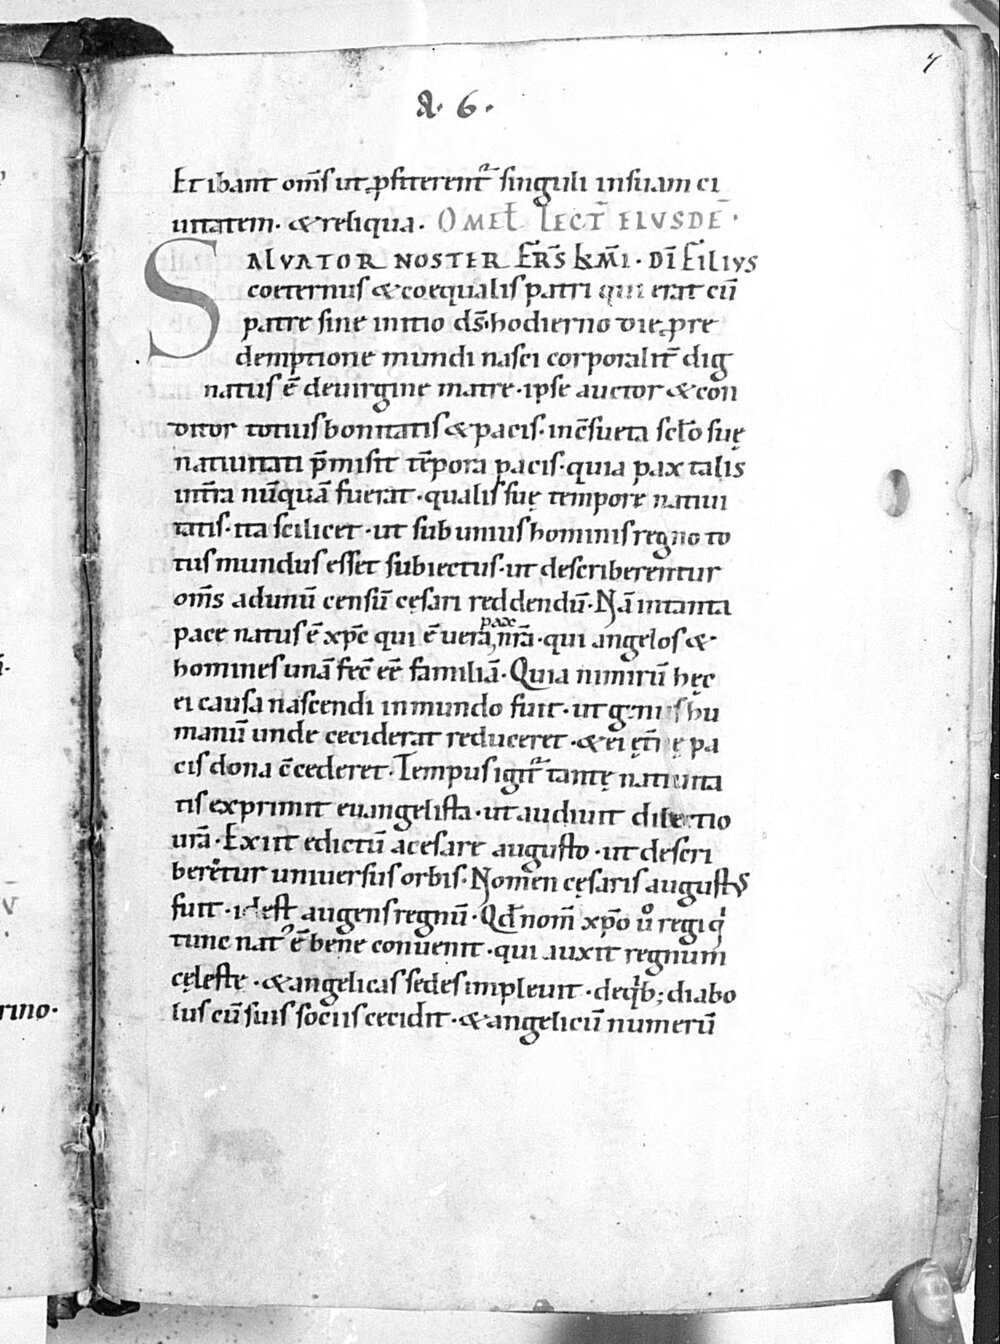 7
A. 6.
Et ibant om̄s ut ꝓfiterent᷑ singuli insuam ci
uitatem. & reliqua. OMEL̄ LECT̄ EIUSDĒ.
SALVATOR NOSTER F̄R̄S K̄M̄I. DĪ FILIUS
coeternus & coequalis patri qui erat cū
patre sine initio d̄s. hodierno die ꝓ re
demptione mundi nasci corporalit̄ dig
natus ē deuirgine matre. ipse auctor & con
ditor totius bonitatis & pacis. inc̄sueta sc̄lo suę
natiuitati p̄misit tēpora pacis. quia pax talis
int̄ra nūquā fuerat. qualis suę tempore natiui
tatis. ita scilicet. ut sub unius hominis regno to
tus mundus esset subiectus. ut describerentur
om̄s adunū censū cęsari reddendū. Nā intanta
pace natus ē xp̄c qui ē uera pax nr̄a. qui angelos &
homines unā fec̄ eē familiā. Quia nimirū hęc
ei causa nascendi inmundo fuit. ut genus hu
manū unde ceciderat reduceret. & ei ęt̄nę pa
cis dona c̄cederet. Tempus igit᷑ tantę natiuita
tis exprimit euangelista. ut audiuit dilectio
ur̄a. Exiit edictū acesare augusto. ut descri
beretur uniuersus orbis. Nomen cęsaris augustus
fuit. idest augens regnū. Qd̄ nom̄ xp̄o uͦ regi qͥ
tunc nat᾽ ē bene conuenit. qui auxit regnum
cęleste. & angelicas sedes impleuit. deqͥb; diabo
lus cū suis sociis cecidit. & angelicū numerū
rino.